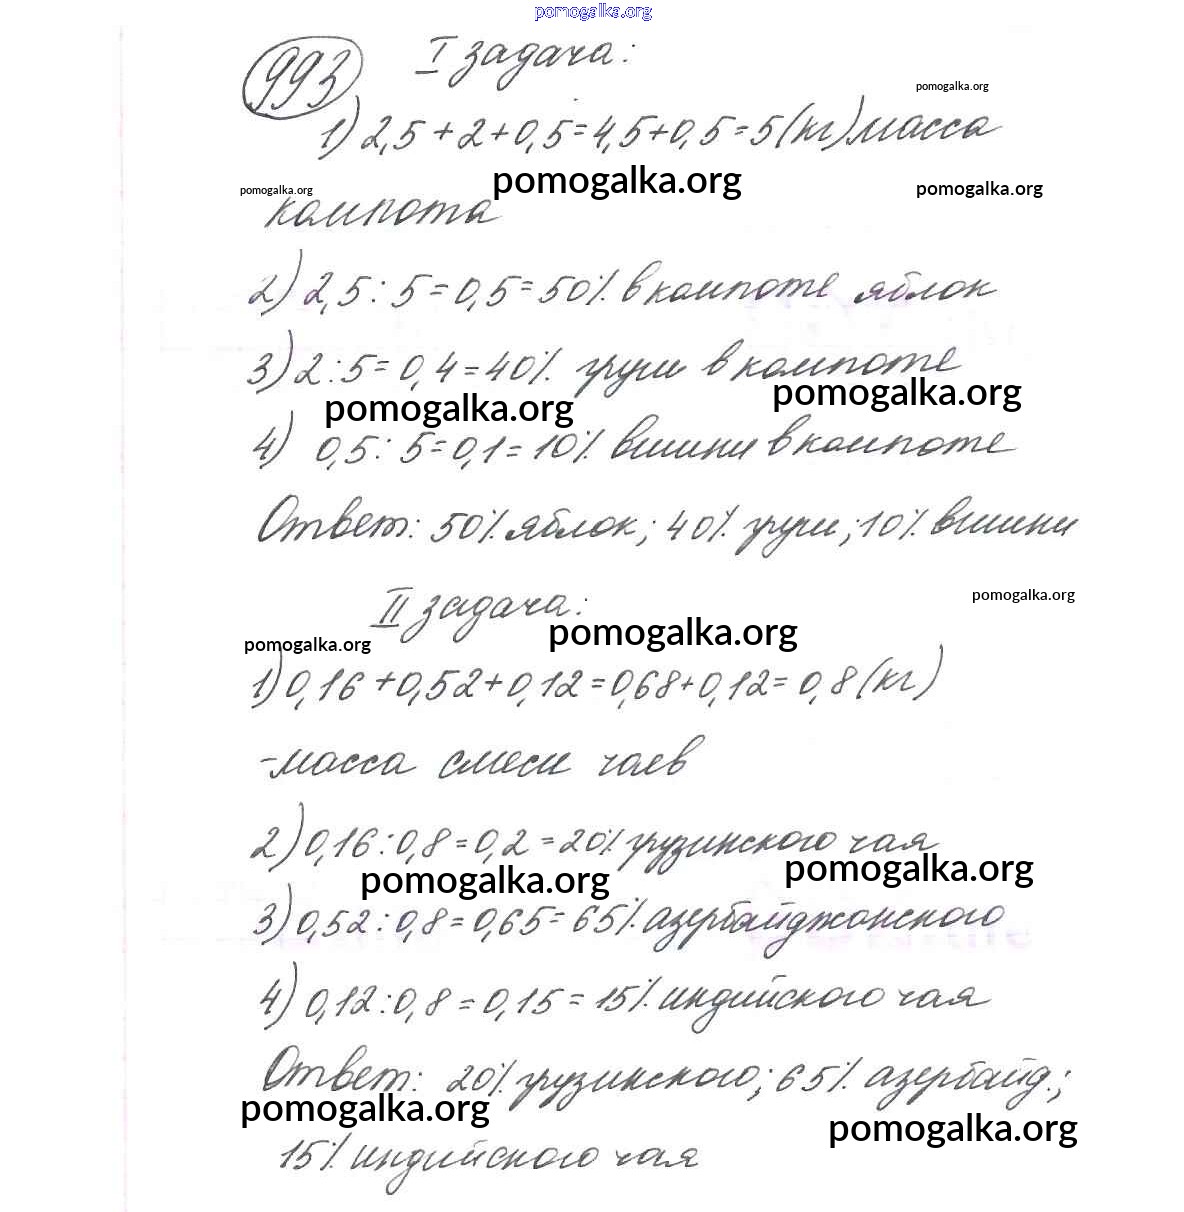 pomogalka.org
993 I задача:
pomogalka.org
1) 2,5 + 2 + 0,5 = 4,5 + 0,5 = 5 (кг) масса
pomogalka.org
pomogalka.org pomogalka.org
компота
2) 2,5 : 5 = 0,5 = 50% в компоте яблок
3) 2 : 5 = 0,4 = 40% груш в компоте
pomogalka.org pomogalka.org
4) 0,5 : 5 = 0,1 = 10% вишни в компоте
Ответ: 50% яблок; 40% груш; 10% вишни
II задача:
pomogalka.org
pomogalka.org pomogalka.org
1) 0,16 + 0,52 + 0,12 = 0,68 + 0,12 = 0,8 (кг)
- масса смеси чаев
2) 0,16 : 0,8 = 0,2 = 20% грузинского чая
pomogalka.org pomogalka.org
3) 0,52 : 0,8 = 0,65 = 65% азербайджонского
4) 0,12 : 0,8 = 0,15 = 15% индийского чая
Ответ: 20% грузинского; 65% азербайд.;
pomogalka.org pomogalka.org
15% индийского чая